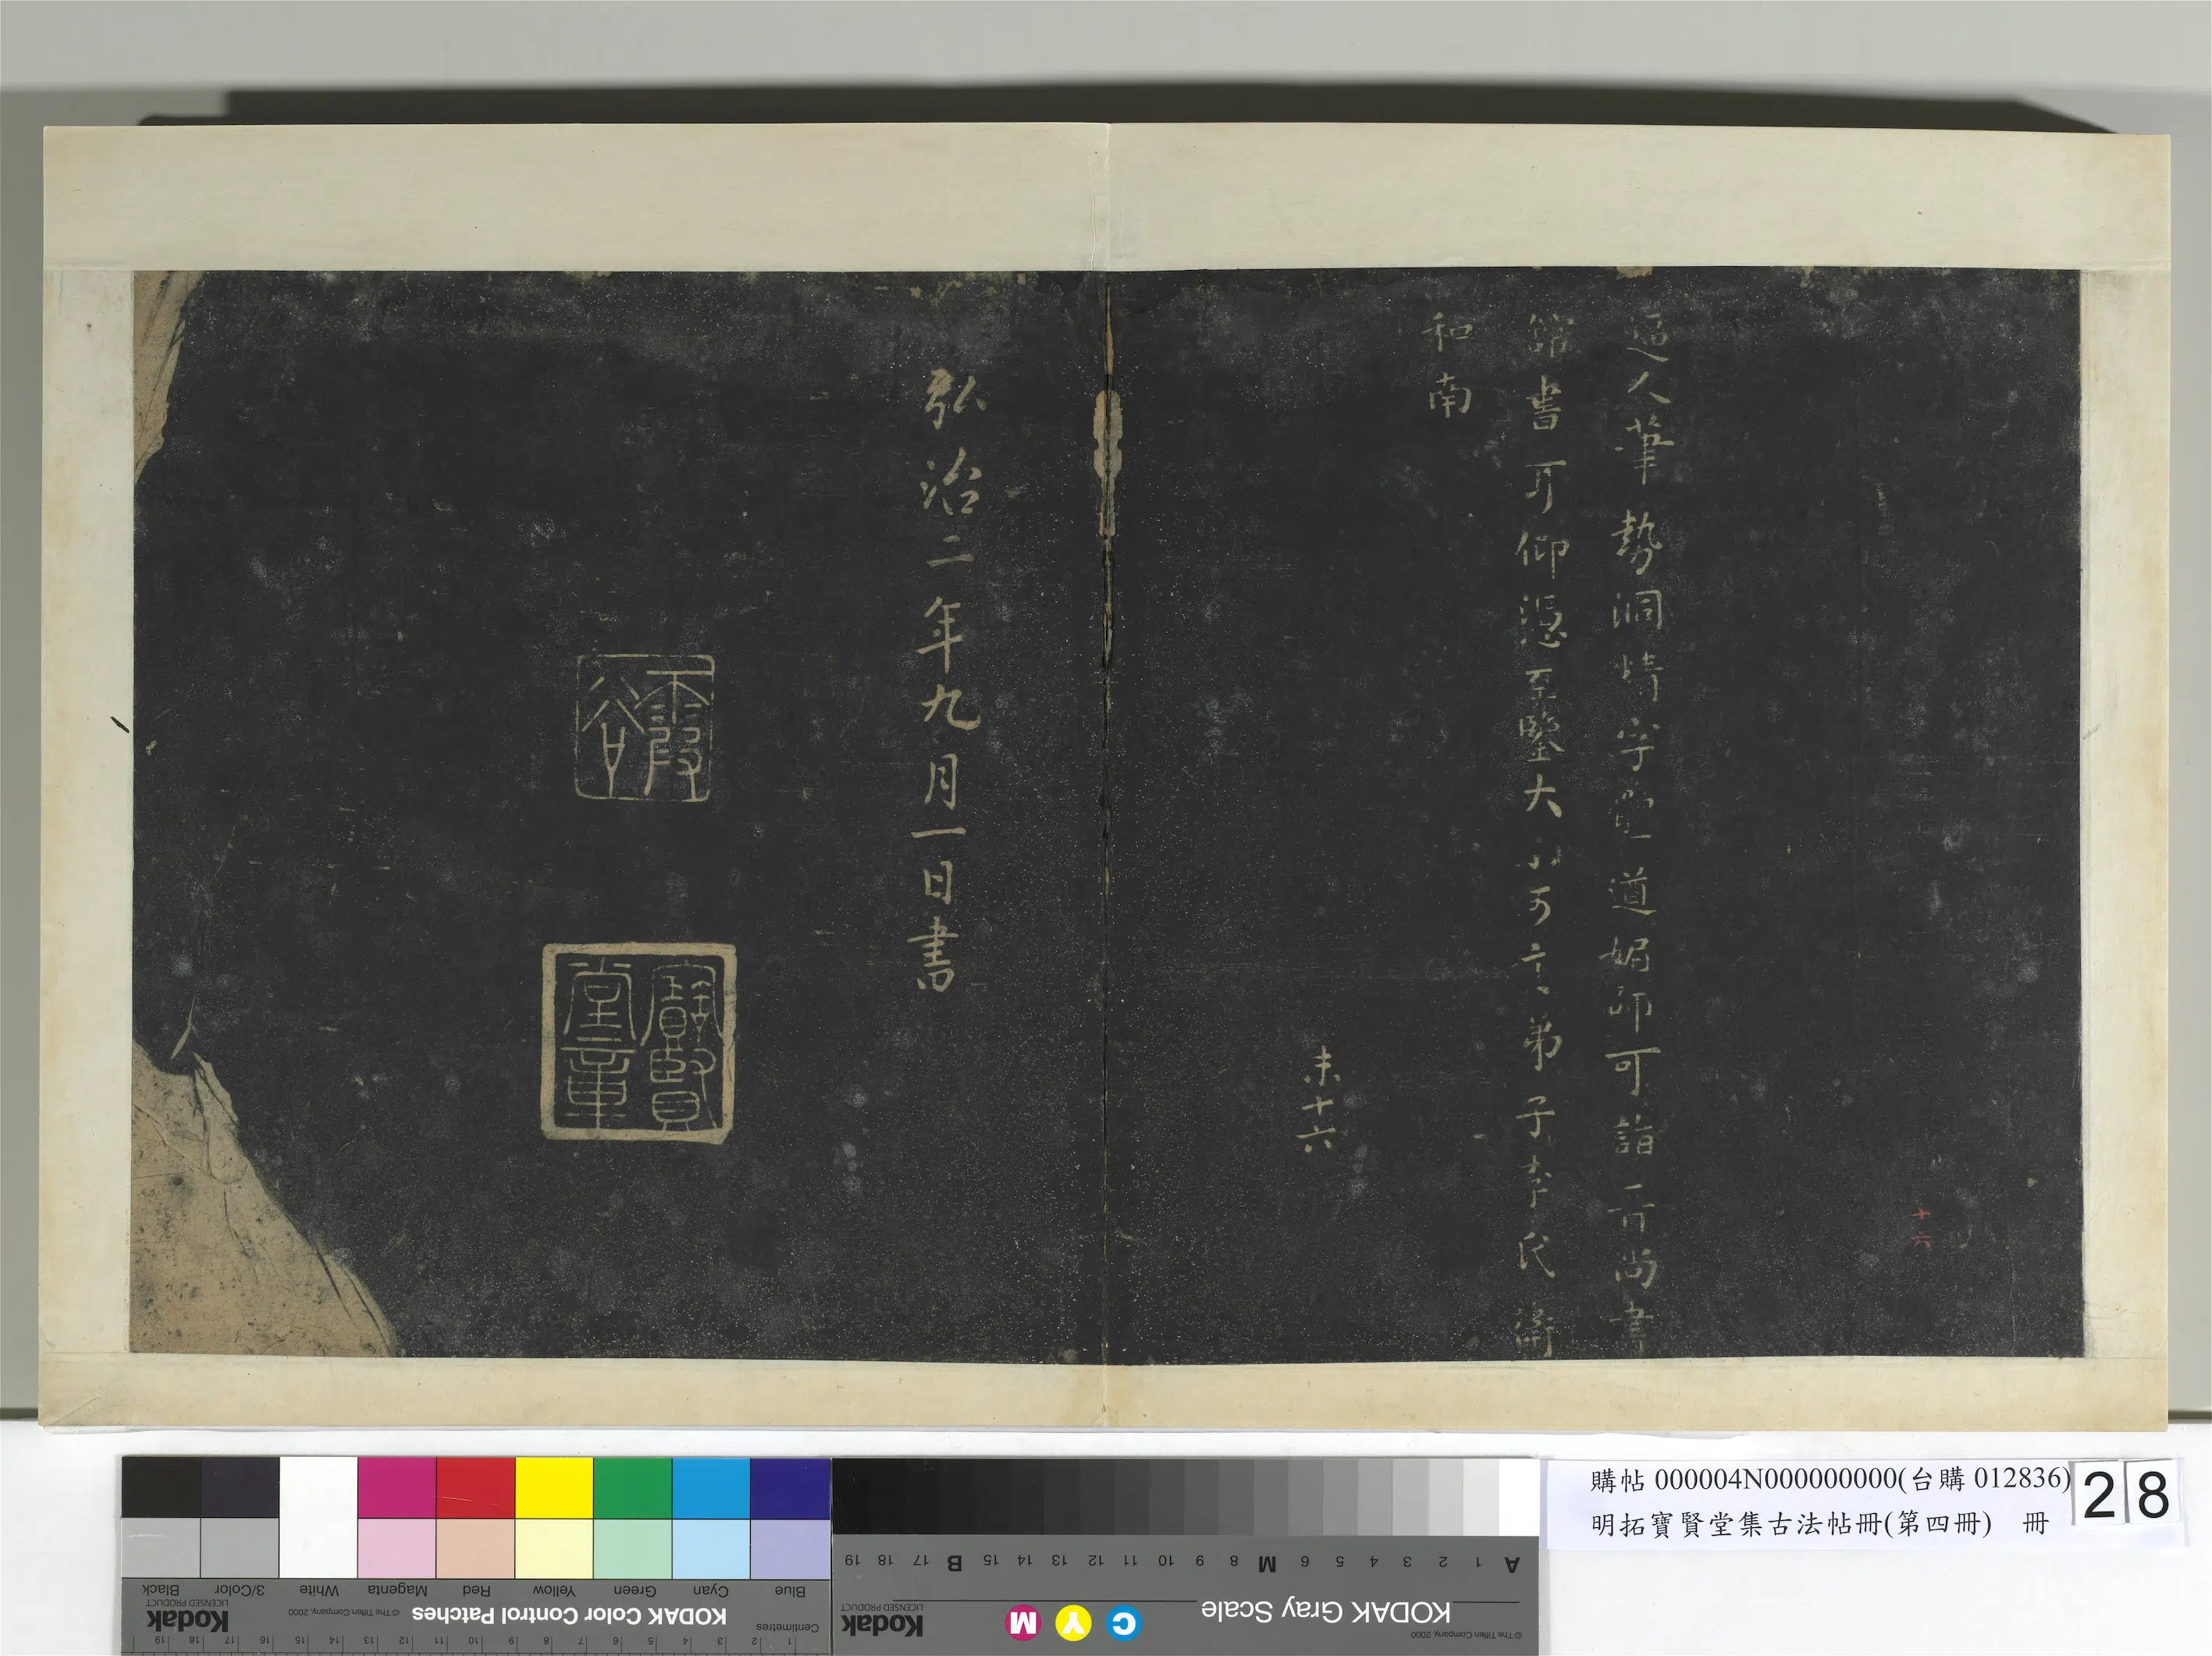 逼人筆勢洞精字體遒媚師可詣晉尚書
館書耳仰憑至鑒大不可言弟子李氏衛
和南
未十六
十六
弘治二年九月一日書
霞谷
寶賢堂章
購帖 000004N000000000(台購 012836)
明拓寶賢堂集古法帖冊(第四冊) 冊
28
Blue Cyan Green Yellow Red Magenta White 3/Color Black
KODAK Color Control Patches
© The Tiffen Company, 2000
Kodak
LICENSED PRODUCT
Centimetres
1 2 3 4 5 6 7 8 9 10 11 12 13 14 15 16 17 18 19
A 1 2 3 4 5 6 M 8 9 10 11 12 13 14 15 B 17 18 19
KODAK Gray Scale
C Y M
Kodak
LICENSED PRODUCT
© The Tiffen Company, 2000